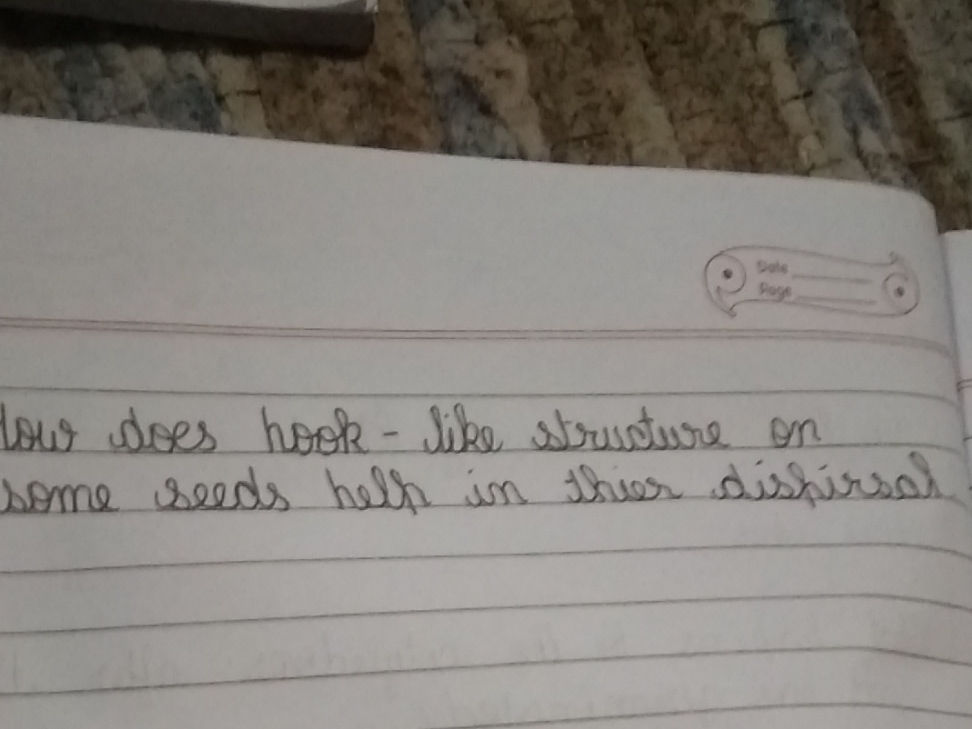 Date
Page
How does hook - like structure on
some seeds help in thier dispirsal